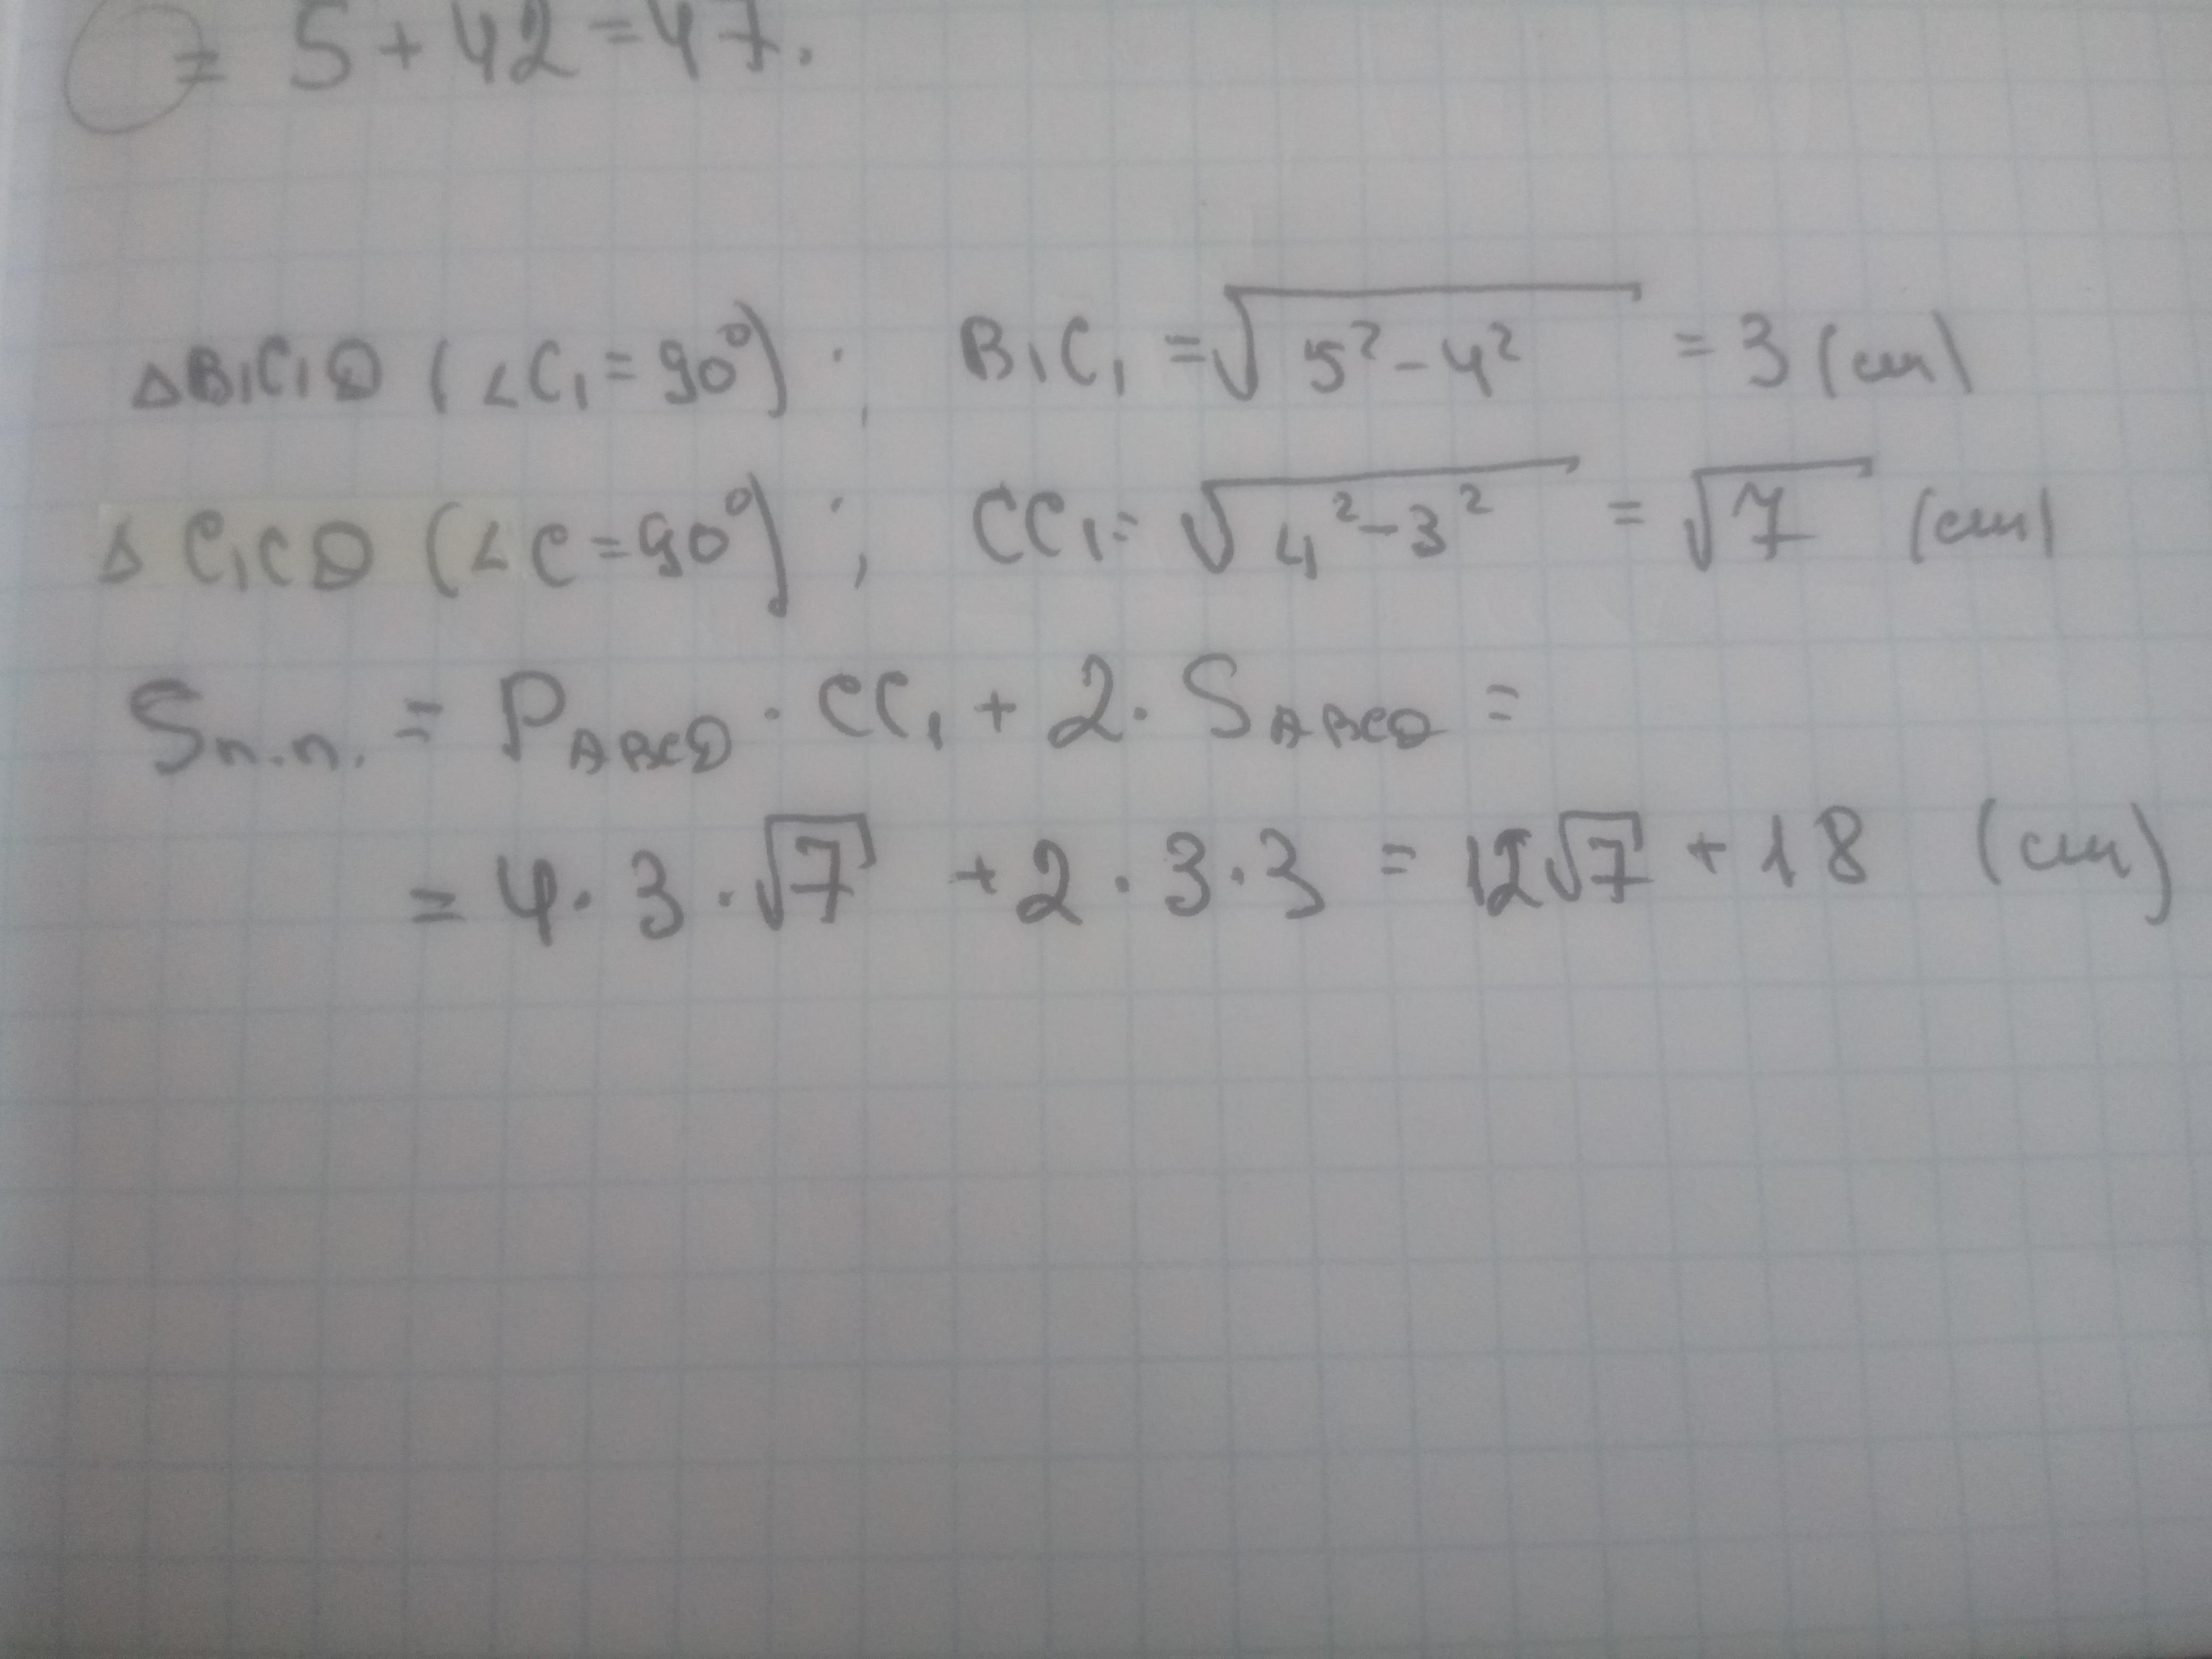 = 5 + 42 = 47.
△B₁C₁D (∠C₁ = 90⁰) ; B₁C₁ = √(5² - 4²) = 3 (см)
△ C₁CD (∠C = 90⁰) ; CC₁ = √(4² - 3²) = √7 (см)
Sп.п. = P_ABCD · CC₁ + 2 · S_ABCD =
= 4 · 3 · √7 + 2 · 3 · 3 = 12√7 + 18 (см)